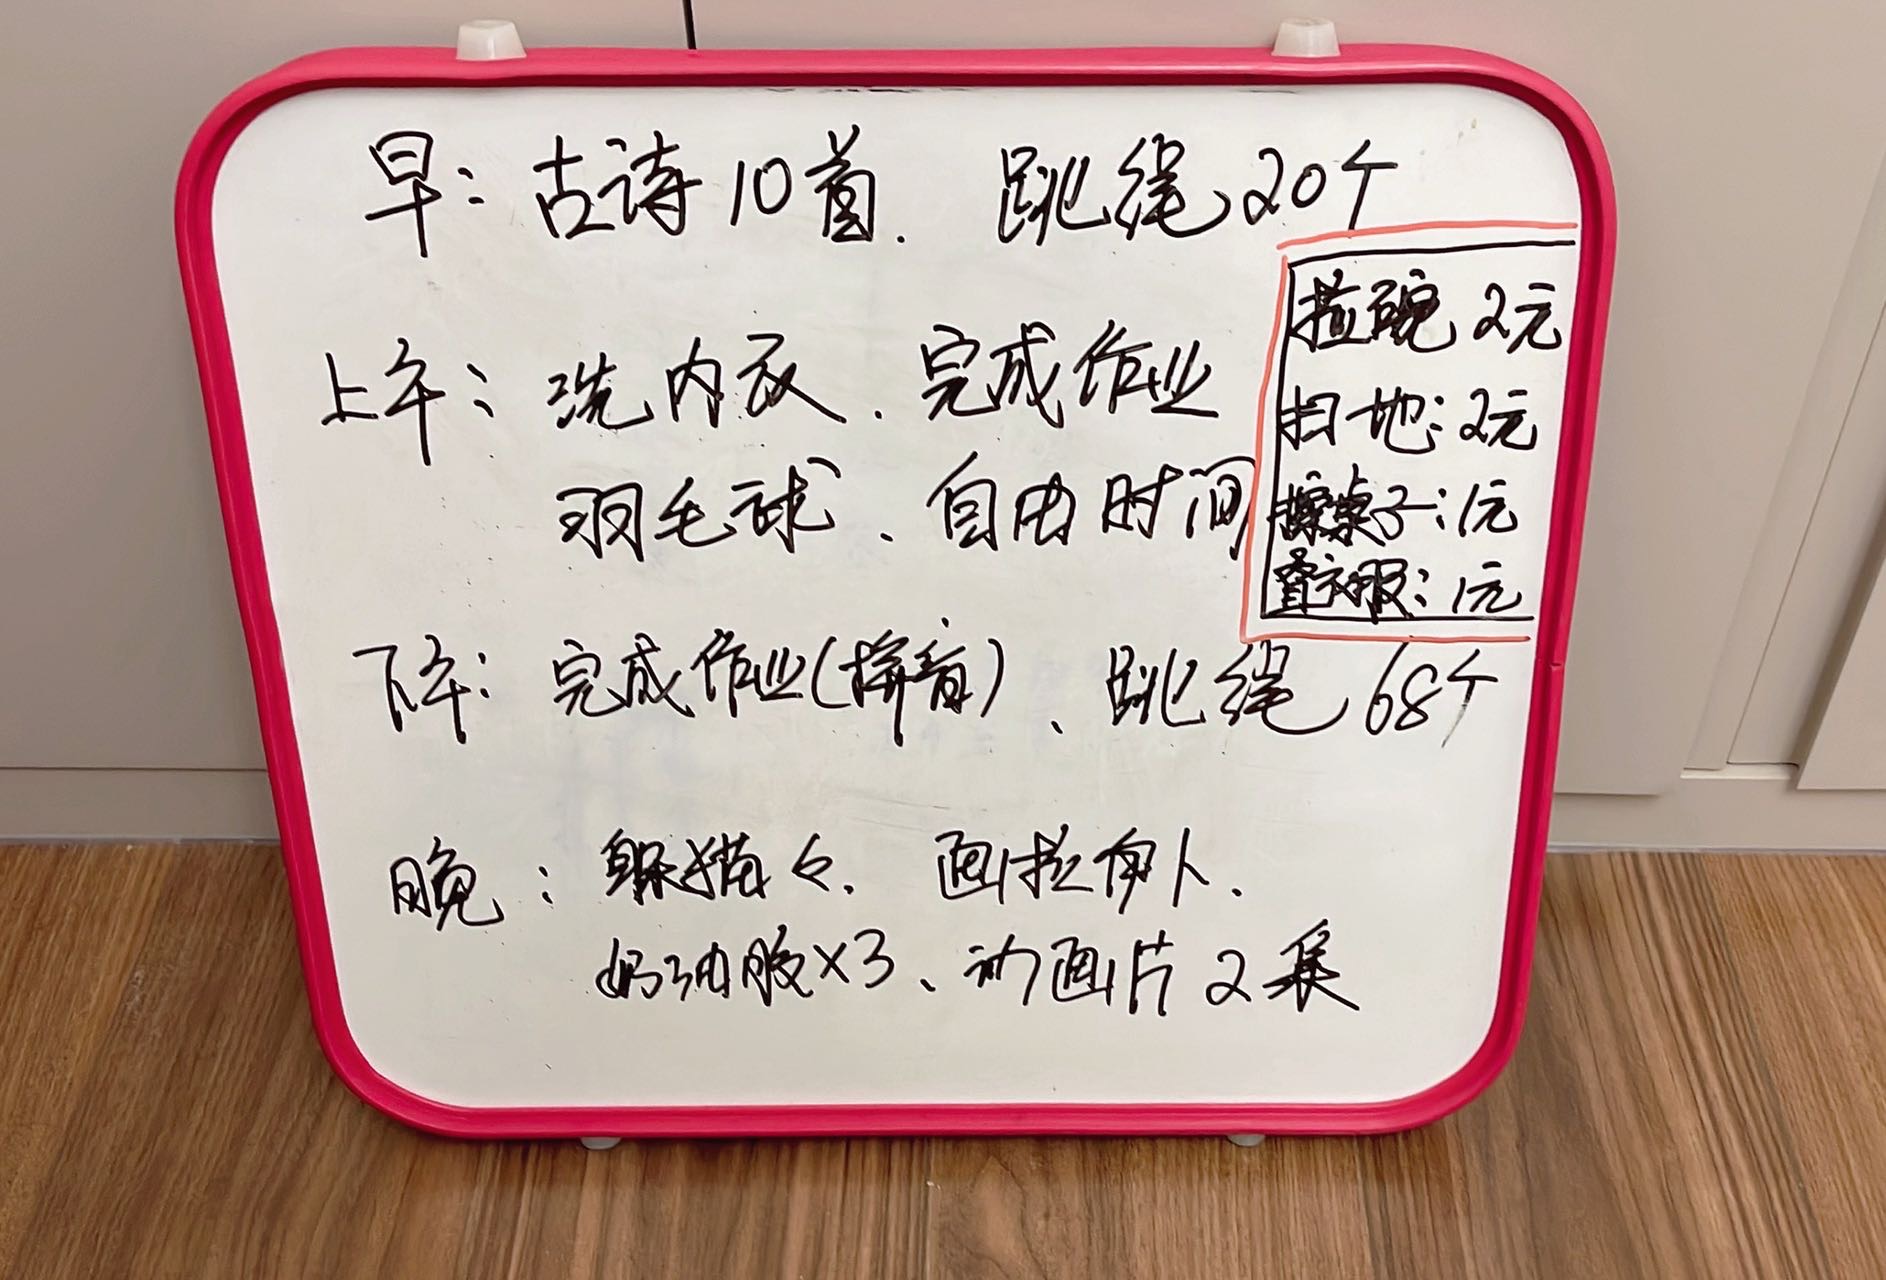 早：古诗10首. 跳绳20个
上午：洗内衣. 完成作业
羽毛球、自由时间
下午：完成作业(拼音)、跳绳68个
晚：躲猫々. 画拉伊卜.
奶油胶×3、动画片2集
捡碗 2元
扫地：2元
擦桌子：1元
叠衣服：1元